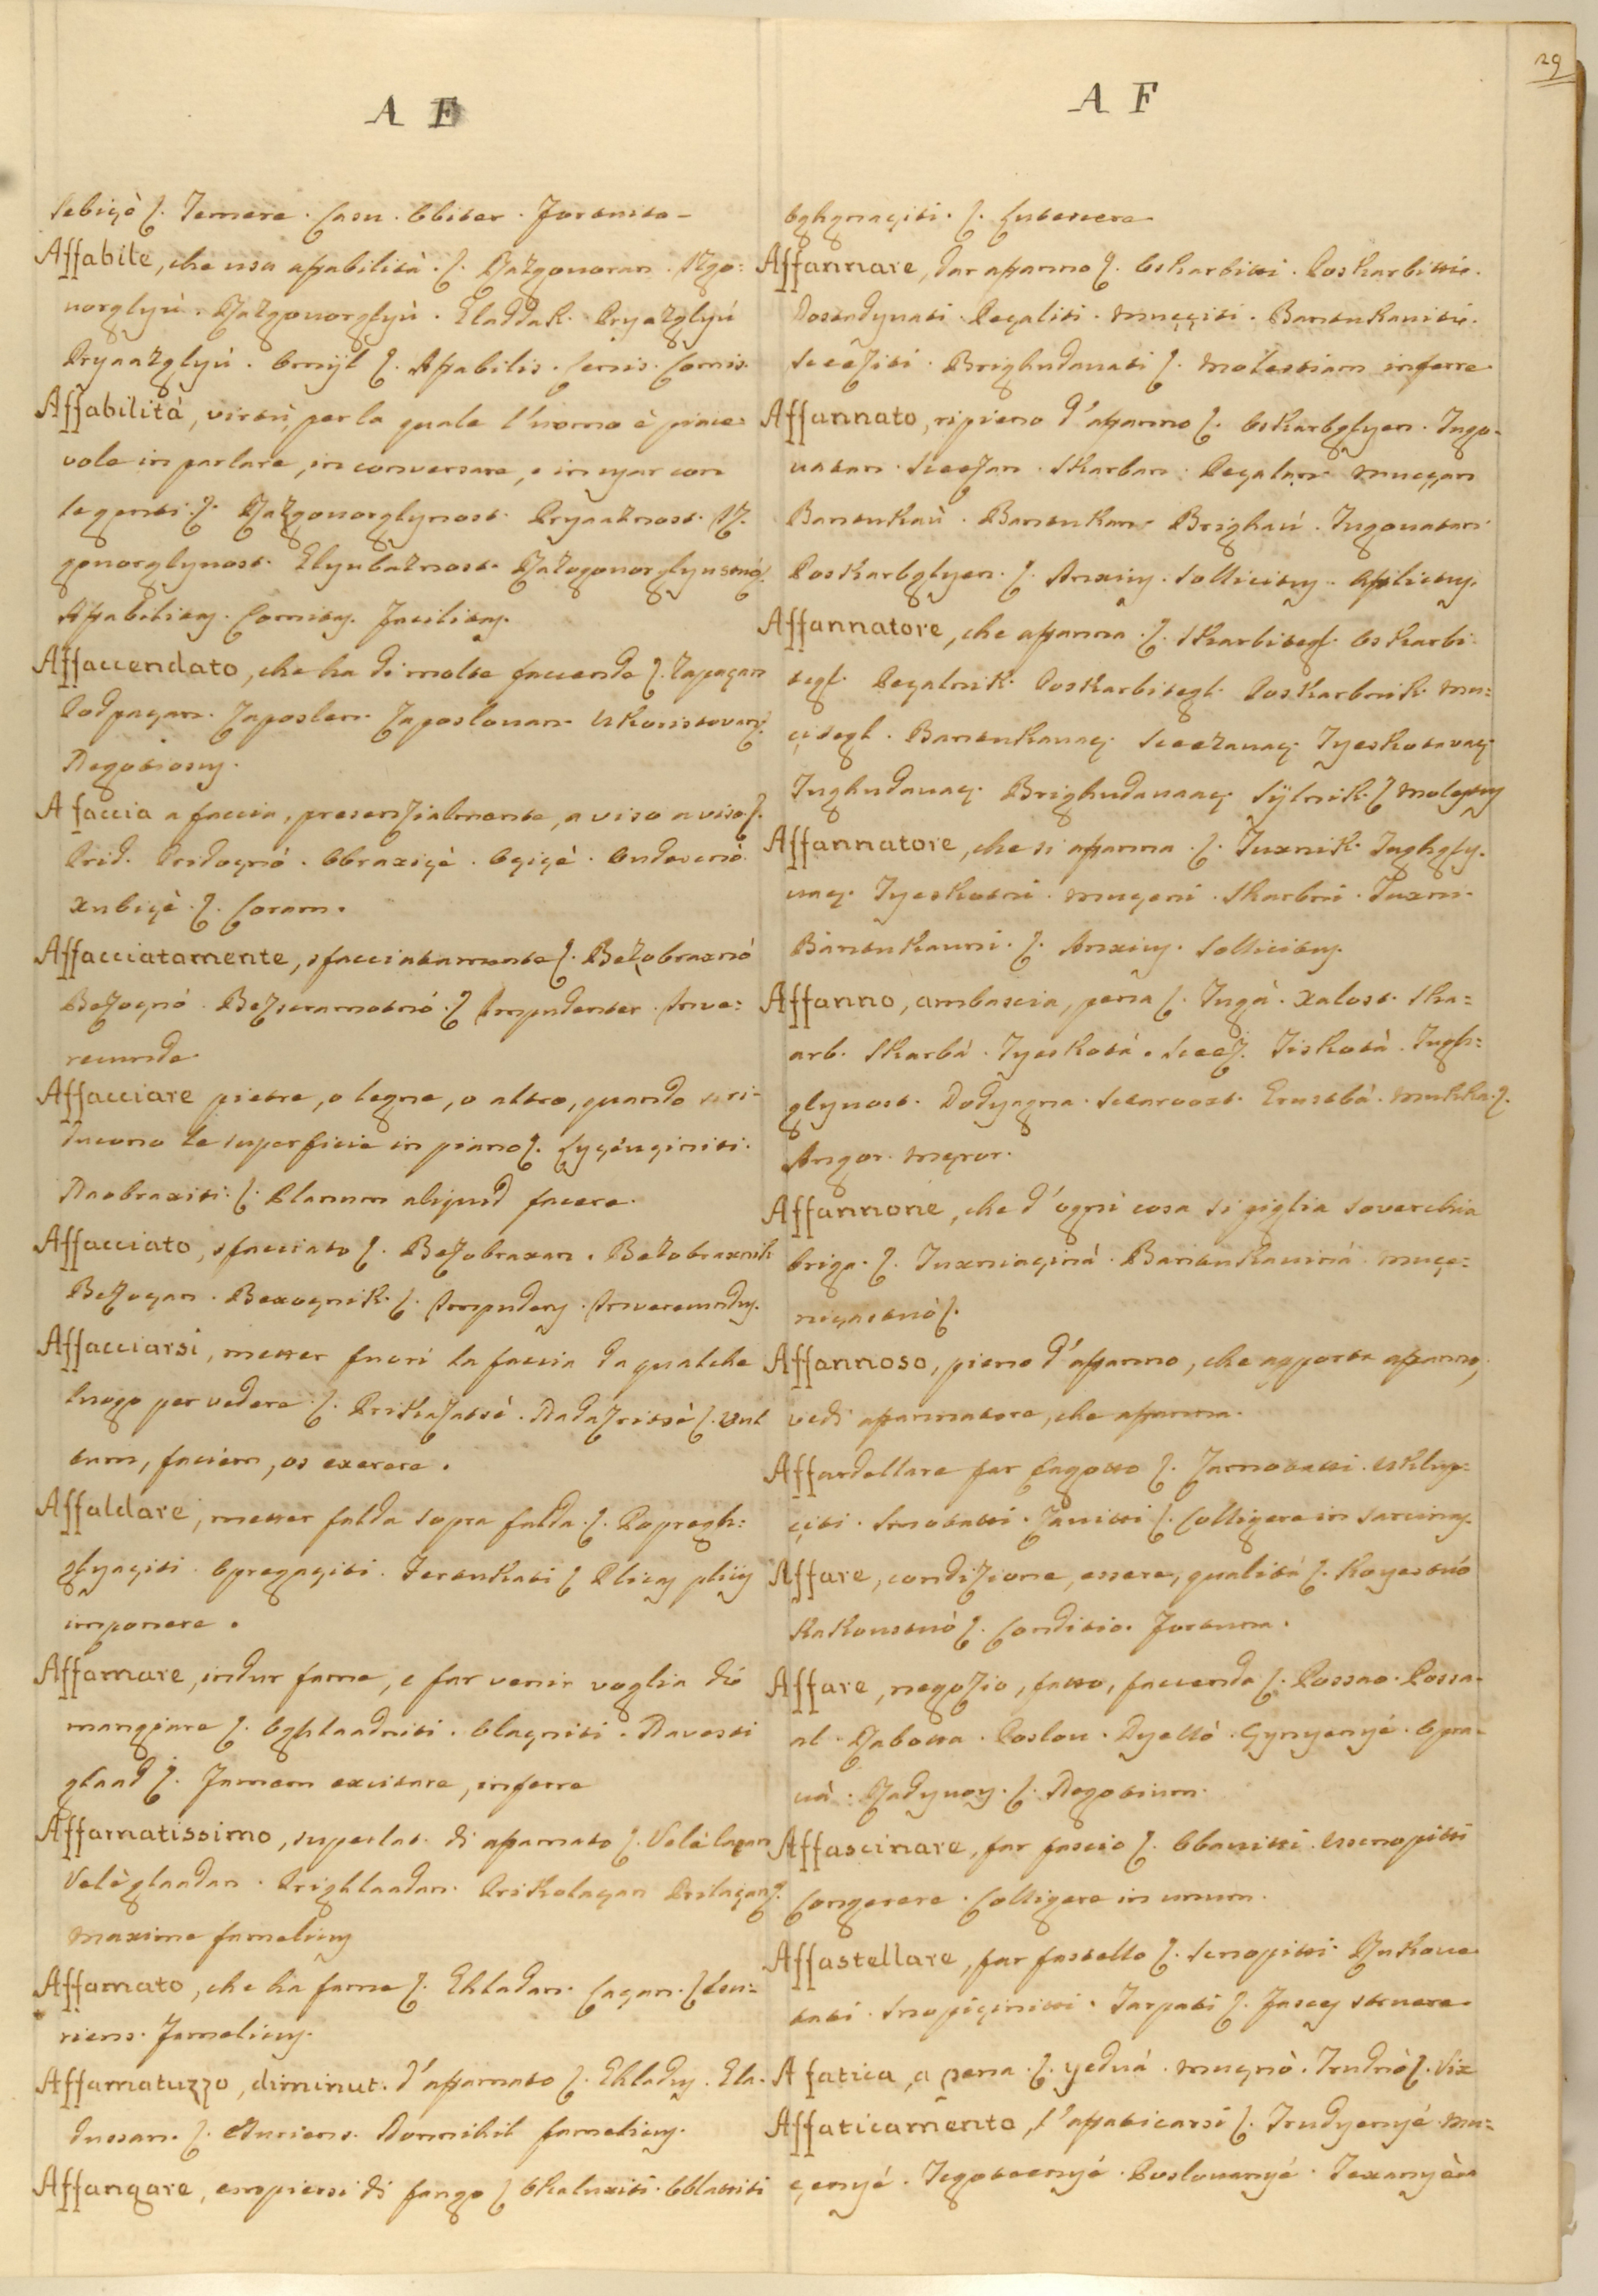 29
A F
sebiçò ʃ. Temere. Casu. Obiter. Fortuito
Affabile, che usa affabilità. ʃ. Razgovoran. Uzgo:
vorglyiù. Razgovorglyiù. Gladdak. Pryazglyiú
Pryaazglyiú. Omijl ʃ. Affabilis. Lenis. Comis.
Affabilità, virtù, per la quale l'uomo è piace:
vole in parlare, in conversare, e in usar con
le genti. ʃ. Razgovorglynost. Pryaaznost. Uz.
govorglynost. Glyubaznost. Razogovorglynstvó.
Affabilitas. Comitas. Facilitas.
Affaccendato, che ha di molte faccende ʃ. Zapaçan
Podpaçan. Zaposlen. Zaposlovan. Ukoristovan.
Negotiosus.
A faccia a faccia, presenzialmente, a viso a viso ʃ.
Prid. Pridoçnó. Obraxiçè. Oçiçè.
xubiçè. ʃ. Coram.
Affacciatamente, sfacciatamente ʃ. Bezobraxnó
Bezoçnó. Bezsramotnó. ʃ Impudenter. Inve:
recunde.
Affacciare pietre, o legne, o altro, quando si ri-
ducono le superficie in piano ʃ.
Naobraxiti. ʃ. Planum aliquid facere.
Affacciato, sfacciato ʃ. Bezobraxan. Bezobraxnik
Bezoçan. Bexoçnik. ʃ. Impudens. Inverecundus.
Affacciarsi, metter fuori la faccia da qualche
luogo per vedere. ʃ. Prikazatsè. Nadazritsè ʃ. Vul
tum, faciem, os exerere.
Affaldare, metter falda sopra falda. ʃ. Popregh:
glyaçiti. Opregaçiti. Terstukati ʃ Plicas plicis
imponere.
Affamare, indur fame, e far venir voglia di
mangiare ʃ. Oghlaadniti. Olaçniti. Navesti
glaad ʃ. Famem excitare, inferre
Affamatissimo, superlat. di affamato ʃ. Velèlaçan
Velèglaadan. Prighlaadan. Prikolaçan Prilaçan ʃ.
maxime famelicus
Affamato, che ha fame ʃ. Ghladan. Laçan. ʃ Esu:
riens. Famelicus.
Affamatuzzo, diminut. d'affamato ʃ. Ghladus. Gla-
dussan. ʃ. Esuriens. Nonnihil famelicus.
Affangare, empiersi di fango ʃ Okaluxiti. Oblatiti
A F
oghgnaçiti. ʃ. Lutescere
Affannare, dar affanno ʃ. Oskarbitti. Poskarbittie.
Dostodynati. Peçaliti. Muççiti. Bantukavitie.
Steeziti. Brighudavati ʃ. Molestiam inferre
Affannato, ripieno d'affanno ʃ. Oskarbglyen. Tugo-
vatan. Steezan. Skarban. Peçalan. Muçan
Bantukaù. Bantukan. Brighaú. Tugovatan.
Poskarbglyen. ʃ. Anxius. Sollicitus. Afflictus.
Affannatore, che affanna. ʃ. Skarbitegl. Oskarbi.
tegl. Peçalnik. Poskarbitegl. Poskarbnik. Mu:
çitegl. Bantukavaç. Steezavaç. Tyeskotavaç
Tughudavaç. Brighudavaaç. Sijlnik ʃ Molestus
Affannatore, che si affanna. ʃ. Tuxnik. Tughgly.
vaç. Tyeskotni. Muçeni. Skarbni. Tuxni.
Bantukauni. ʃ. Anxius. Sollicitus.
Affanno, ambascia, pena ʃ. Tugà. Xalost. Ska:
arb. Skarbá. Tyeskotá. Steez. Tiskotà. Tugh:
glynost. Dodyagna. Staroost. Grustbà. Mukka. ʃ.
Angor. Meror.
Affannone, che d'ogni cosa si piglia soverchia
briga. ʃ. Tuxniaçinà. Bantukavinà. Muçe:
niçastuò ʃ.
Affannoso, pieno d'affanno, che apporta affanno,
vedi affannatore, che affanna.
Affardellare far fagotto ʃ. Zamotatti. Uklup:
çiti. Smotatti. Zavitti ʃ. Colligere in sarcinas.
Affare, condizione, essere, qualità ʃ. Koyestvó
Kakovstvó ʃ. Conditio. Fortuna.
Affare, negozio, fatto, faccenda ʃ. Possao. Possa-
al. Rabotta. Poslou. Dyelló. Çynyenyé. Opra-
và. Zadyvay. ʃ. Negotium.
Affascinare, far fascio ʃ. Obavitti. Ussnopitti
Congerere. Colligere in unum.
Affastellare, far fastello ʃ. Snopitti. Rukove
tati. Snopiçinitti. Tarpati ʃ. Fasces struere.
A fatica, a pena. ʃ. yedvá. Muçnò. Trudnò ʃ. Vix
Affaticamento, l'affaticarsi ʃ. Trudyenyé. Mu:
çenyé. Tegotcenyé. Poslovanyé. Texanyè